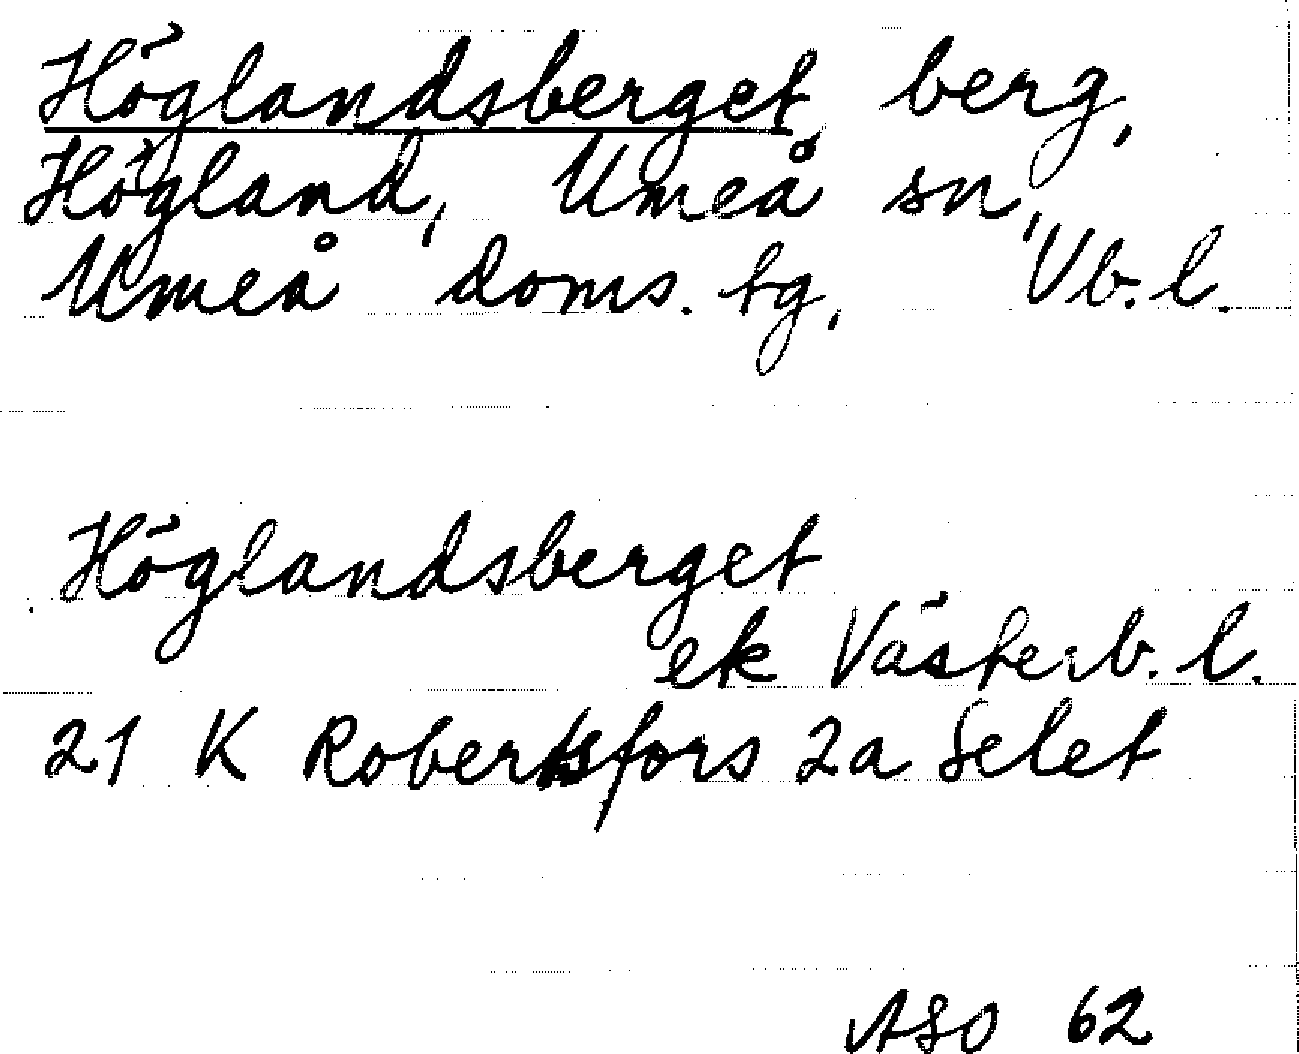 Höglandsberget, berg,
Högland, Umeå sn,
Umeå doms. tg, Vb. l.
Höglandsberget
ek Västerb. l.
21 K Robertsfors 2a Selet
ASO 62